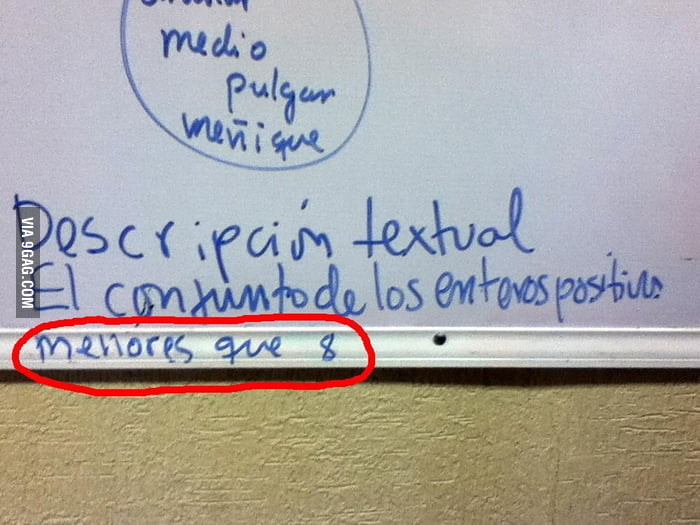 medio
pulgar
meñique
Descripción textual
El conjunto de los enteros positivos
menores que 8
VIA 9GAG.COM